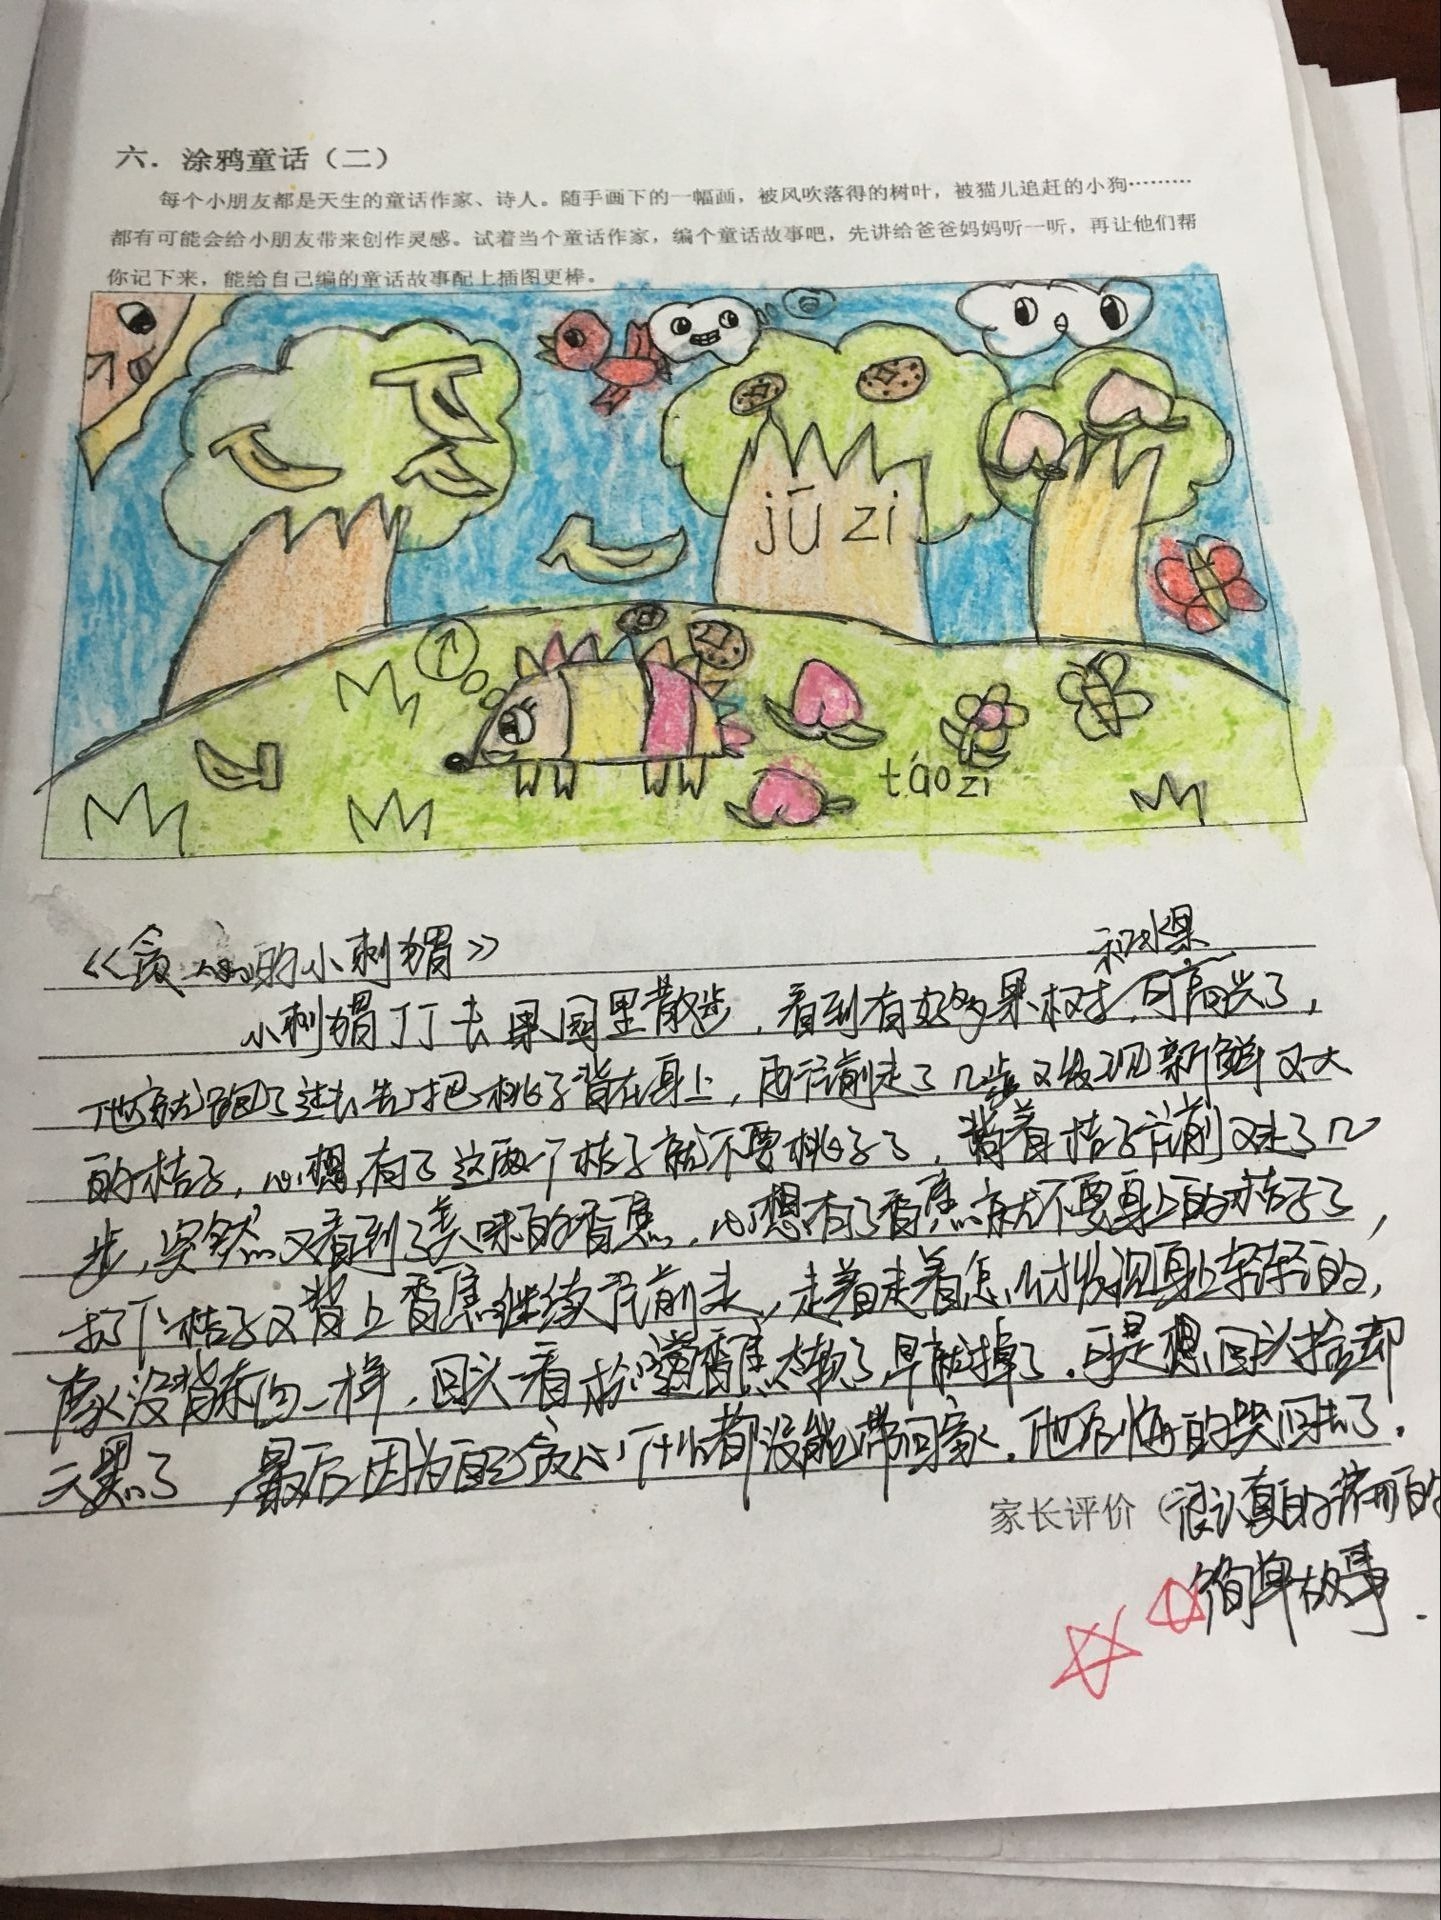 六．涂鸦童话（二）
每个小朋友都是天生的童话作家、诗人。随手画下的一幅画，被风吹落得的树叶，被猫儿追赶的小狗………
都有可能会给小朋友带来创作灵感。试着当个童话作家，编个童话故事吧，先讲给爸爸妈妈听一听，再让他们帮
你记下来，能给自己编的童话故事配上插图更棒。
jū zi
táo zi
《贪心的小刺猬》
和水果
小刺猬丁丁去果园里散步，看到有好多果树，可高兴了，
他就跑了过去先把桃子背在身上，再往前走了几步又发现新鲜又大
的桔子，心想，有了这两个桔子就不要桃子了，背着桔子往前又走了几
步，突然又看到了美味的香蕉，心想有了香蕉就不要身上的桔子了，
扔下桔子又背上香蕉继续往前走，走着走着怎么发现身上轻轻的，
像没背东西一样，回头一看香蕉太软了早就掉了，可是想回头捡却
天黑了，最后因为自己贪心什么都没能带回家，他后悔的哭回去了．
家长评价（很认真的
简单故事．